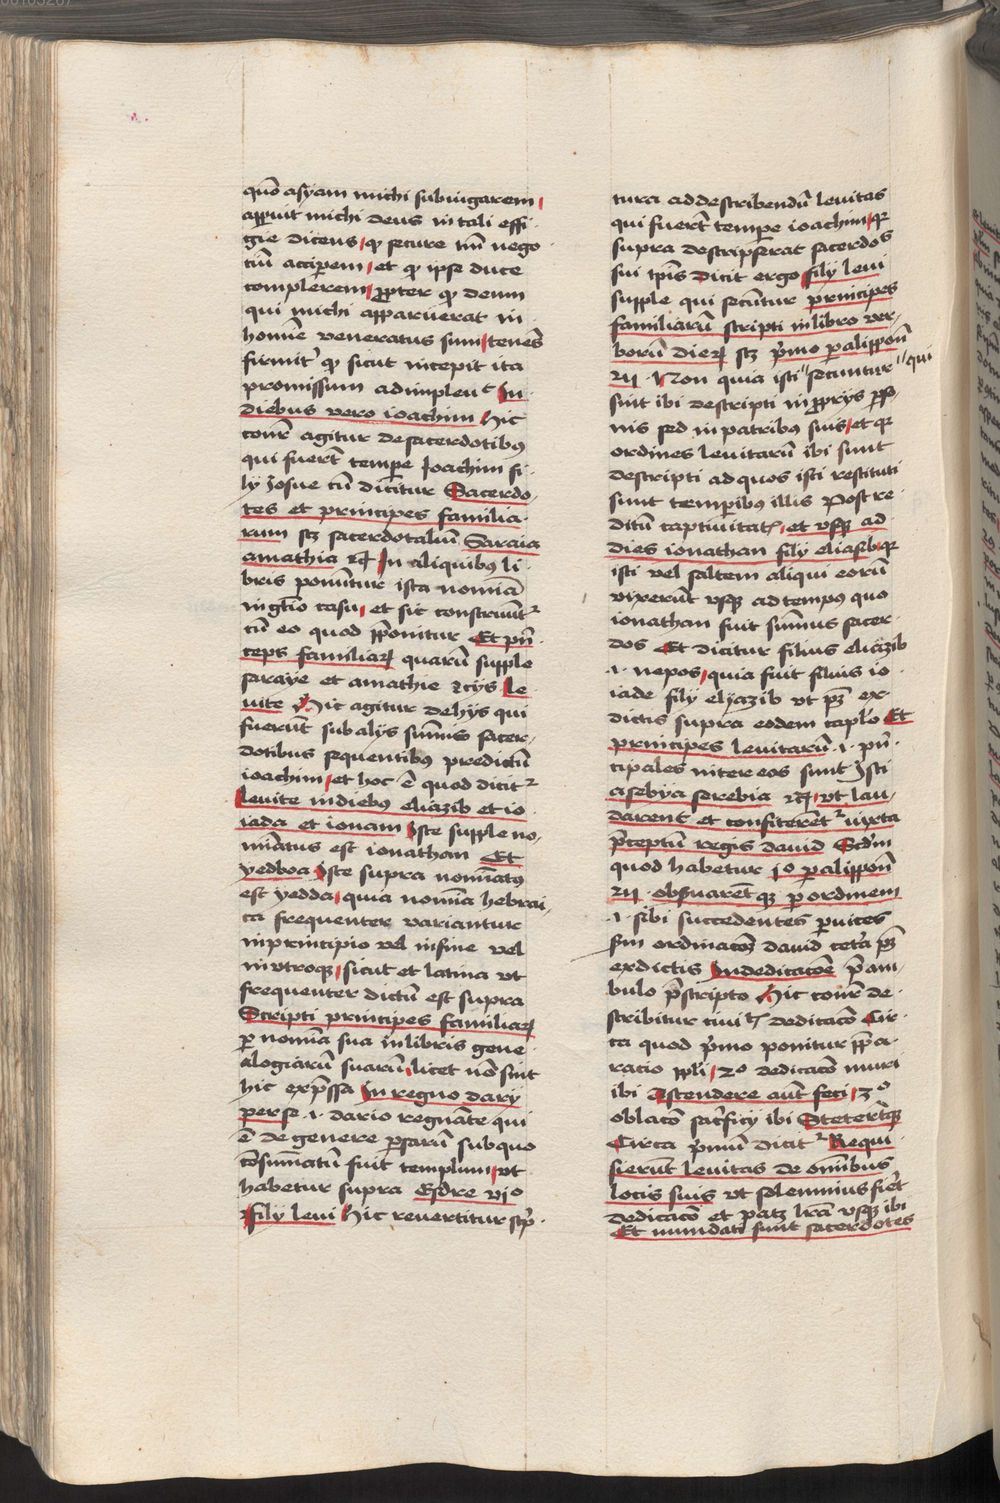 quo͞ asyam michi subiugarem
apparuit michi deus in tali effi
gie dicens q secure mn͞ nego
ciu͞ acciperem et q ipse duce
complerem propter q deum
qui michi apparuerat in
homi͞e veneratus sum tenens
firmit q sicut incepit ita
promissum adimplevit In
diebus vero ioachim Hic
conn͞r agitur de sacerdotibus
qui fuer͞t tempe Joachim fi
lÿ Josue cu͞ dicitur Sacerdo
tes et principes familia
rum scz sacerdotaliu͞ Saraia
amathia rc͞ In aliquibus li
bris ponu͞tur ista nomi͞a
in gt͞io casu et sic construu͞t
cu͞ eo quod p͞ponitur Et pri͞n
ceps familiarꝝ quaru͞ supple
saraye et amathie rc͞ ijs Le
uite Hic agitur de hÿs qui
fueru͞t sub alÿs summis sacer
dotibus sequentibus predictu͞
ioachim et hoc e͞ quod dicit
Leuite in diebus eliazib et io
iada et ionam Iste supple no
mi͞atus est ionathan Et
yedboa Iste supra nomi͞atus
est yedda quia nomi͞a hebrai
ca frequenter variantur
in principio vel in fine vel
in utroqꝫ sicut et latina vt
frequenter dictu͞ est supra
Scripti principes familiarꝝ
p nomi͞a sua in libris gene
alogiaru͞ suaru͞ licet no͞ sint
hic exp͞ssa In regno darÿ
perse .i. dario regna͞te qui
e͞ de genere persaru͞ sub quo
co͞summatu͞ fuit templum vt
habetur supra Esdre vjo
filÿ leui Hic revertitur scp͞
tura ad describendu͞ leuitas
qui fuer͞t tempe ioachim qr
supra descripserat sacerdos
sui tp͞is Dicit ergo filÿ leui
supple qui secu͞tur principes
familiaru͞ scripti in libro ver
boru͞ dierꝝ scz p͞mo paralippon͞
Non quia isti secuntur qui
sint ibi descripti in proprÿs pso
nis sed in patribus suis et qr
ordines leuitaru͞ ibi sunt
descripti ad quos isti restituti
sunt temporibus illis Post re
ditu͞ captiuitatꝭ et vsqꝫ ad
dies ionathan filÿ eliasib qr
isti vel saltem aliqui eoru͞
vixeru͞t vsqꝫ ad tempus quo
ionathan fuit summus sacer
dos Et dicitur filius eliazib
.i. nepos quia fuit filius io
iade filÿ elyazib vt pꝫ ex
dictis supra eodem caplo͞ Et
principes leuitaru͞ .i. pri͞n
cipales inter eos sunt Isti
asebya serebia rc͞ vt lau
darent et confiterent iuxta
p͞ceptu͞ regis dauid Scd͞m
quod habetur jo paralippon͞
obseruarent qꝫ p ordinem
.i. sibi succedentes p vices
scd͞m ordinaco͞ꝫ dauid cetera pꝫ
ex dictis In dedicaco͞e p͞am
bulo p͞scripto Hic conn͞r de
scribitur ciuitꝭ dedicaco͞ Cir
ca quod p͞mo ponitur p͞pa
ratio ppli͞ 2o dedicaco͞ muri
ibi Ascendere aut͞ feci 3o
oblaco͞ sac͞rficÿ ibi Steteru͞tqꝫ
Circa p͞mu͞ dicit Requi
sierunt leuitas de omi͞bus
locis suis vt solemnius fier͞t
dedicaco͞ et patꝫ lr͞a vsqꝫ ibi
Et mundati sunt sacerdotes